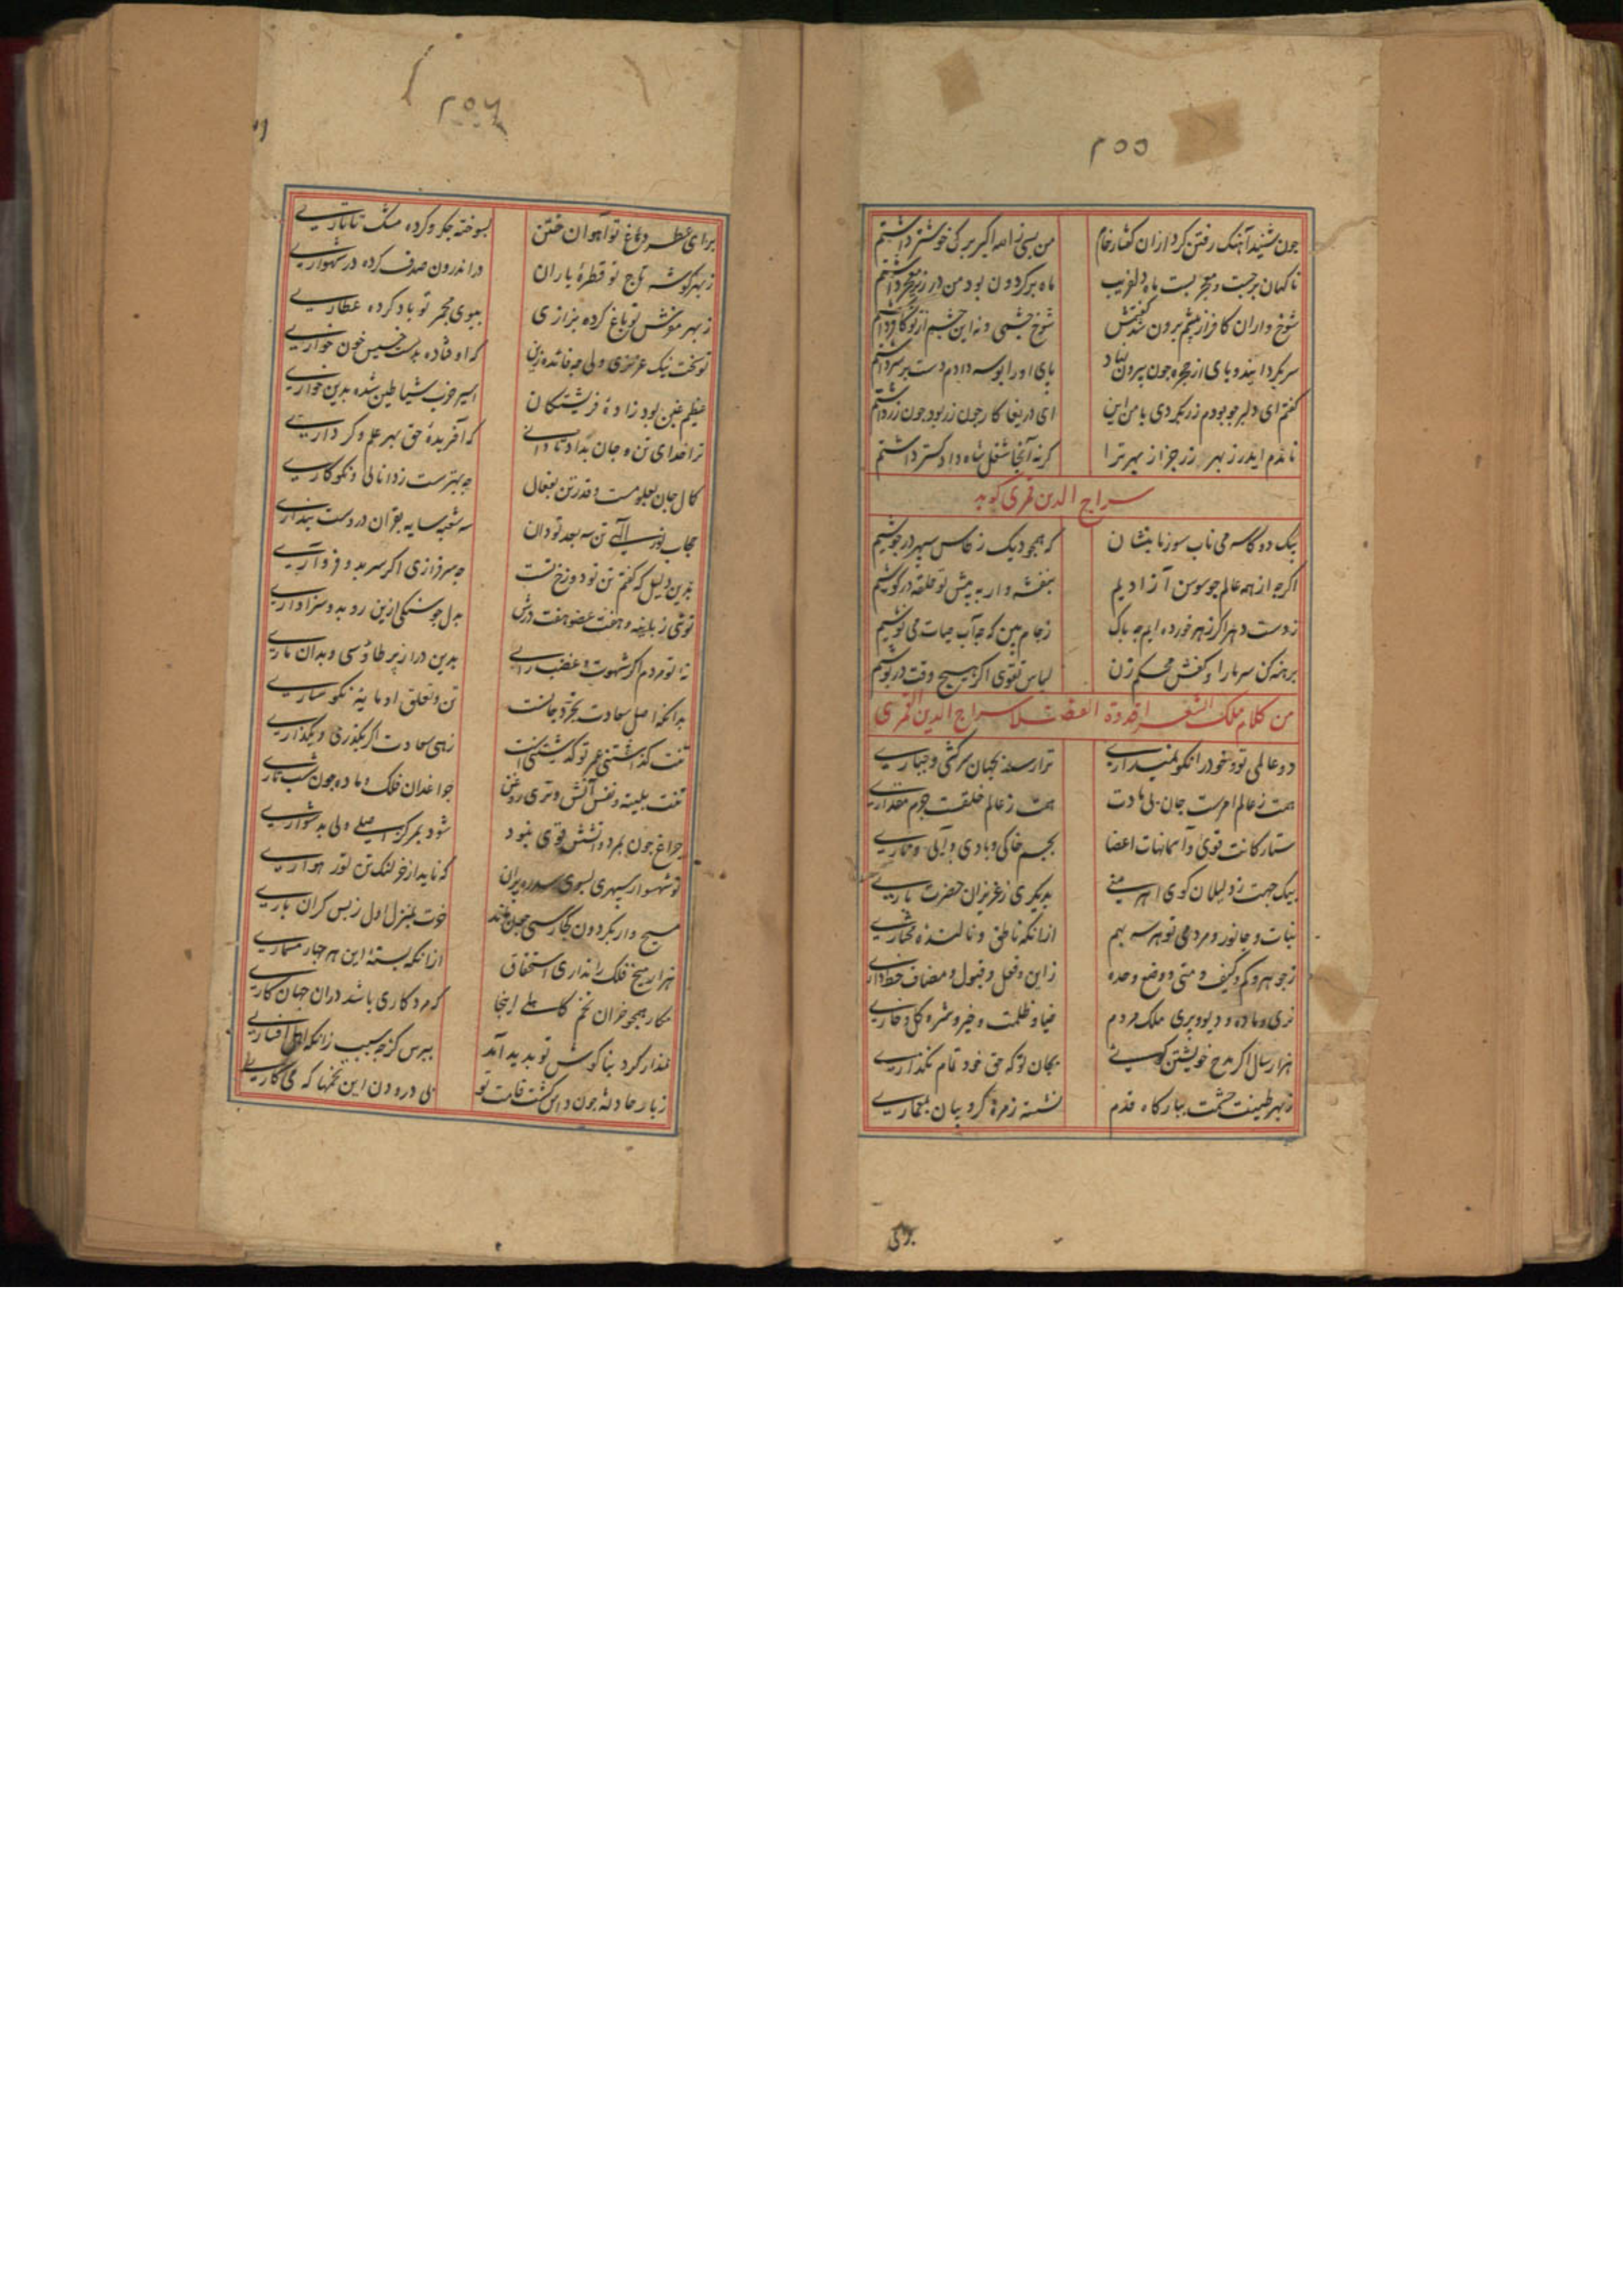 ۲۵۵
چون شنید آهنک رفتن کرد ازان کفتار خام من بسی زالله اکبر بر کی خوشتر داشتم
ناکهان برجست و معجر بست ماه دلفریب ماه بر کردون بود من در زیر معجر داشتم
شوخ واران کافر از پیشم برون شد کفتمش شوخ چشمی
سر بکردانید و پای از حجره چون بیرون نهاد پای او را بوسه دادم دست بر سر داشتم
کفتم ای دلبر چو بودم زر نکردی با من این ای دریغا کار چون زر بود چون زر داشتم
ماندم ایدر ز بهر زر جز از بهر ترا کر نه آنجا شغل شاه دادکستر داشتم
سراج الدین قمری کوید
بیک دو کاسه می ناب سوز ما بنشان که همچو دیک ز کاس سپهر در جوشیم
اکرچه از همه عالم چو سوسن آزادیم بنفشه وار به پیش تو حلقه در کوشیم
ز دست دهر اکر زهر خورده ایم چه باک ز جام بین که چو آب حیات می نوشیم
برهنه کن سر ما را و کفش محکم زن لباس تقوی اکر هیچ وقت در پوشیم
من کلام ملک الشعرا قدوة الفضلا سراج الدین القمری
دو عالمی تو و خود را نکو نمیداری ترا رسد بجهان سرکشی و جباری
هست ز عالم امرست جان بی مادت هست ز عالم خلقت جرم مقداری
ستارکانت قوی و آسمانهات اعضا بجسم خاکی و بادی و آبی و ناری
بیک جهت ز ذلیلان کوی اهرمنی بدیکری ز عزیزان حضرت باری
نبات و جانور و مردمی تو هر سه بهم ازانکه ناطق و نالنده مختاری
ز جوهر و کم و کیف و متی و وضع و حده ز این و فعل و قبول و مضاف خط داری
نری و ماده و دیو و پری ملک مردم ضیا و ظلمت و خیر و شره کل و خاری
هزار سال اکر مدح خویشتن کویی بجان تو که حق خود تمام نکذاری
ز بهر طینت حشمت ببارکاه قدم نشسته زمره کروبیان بمعماری
برای
۲۵۶
برای عطر دماغ تو آهوان ختن بسوخته جکر و کرده مشک تاتاری
ز بهر کوشه تاج تو قطره باران در اندرون صدف کرده در شهواری
ز بهر مونش تو باغ کرده بزازی ببوی مجمر تو باد کرده عطاری
تو سخت نیک عزیزی ولی چه فائده زین که اوفتاده بدست خسیس خون خواری
عظیم غبن بود زاده فرشتکان اسیر حزب شیاطین شده بدین خواری
ترا خدای تن و جان بداد تا دانی که آفریده حق بهر علم و کرداری
کمال جان بعلومست و قدر تن بفعال چه بهترست ز دانائی و نکوکاری
حجاب نور الهی تن سه بعد تو دان سه شعبه سایه بقرآن درست پنداری
بدین دلیل که کفتم تن تو دوزخ تست چه سرفرازی اکر سر بدو فرو آری
توئی زبانیه و هفت عضو هفت درش بدل چو سنکی ازین رو بدو سزاواری
نه تو مردم اکر شهوت و غضب رانی بدین دراز پر طاوسی و بدان ماری
بدانکه اصل سعادت تجرد جانست تن و تعلق او مایه نکوساری
تنت کذاشتنی عمر تو کذشتنی است زهی سعادت اکر بکذری و بکذاری
تنت فلیته و نفس آتش و تری روغن چراغدان فلک و ماده چون شب تاری
چراغ چون بمرد آتشش قوی نبود شود بمرکز اصلی ولی بدشواری
تو شهسوار سپهری بسوی سدره بران که ناید از خر لنک تن تو رهواری
مسیح وار بکردون کجا رسی چون ماند خرت بمنزل اول ز بس کران باری
هزار میخ فلک را نداری استحقاق ازانکه بسته این هر چهار مسماری
مکار همچو خزان تخم کاهلی اینجا که مرد کاری باشد دران جهان کاری
عذار کرد بناکوش تو بدید آمد بپرس کز چه سبب زانکه اهل اخباری
ز بار حادثه چون داس کشت قامت تو پی درودن این تخمها که می کاری